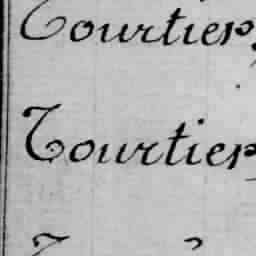 Tourtier,
Tourtier